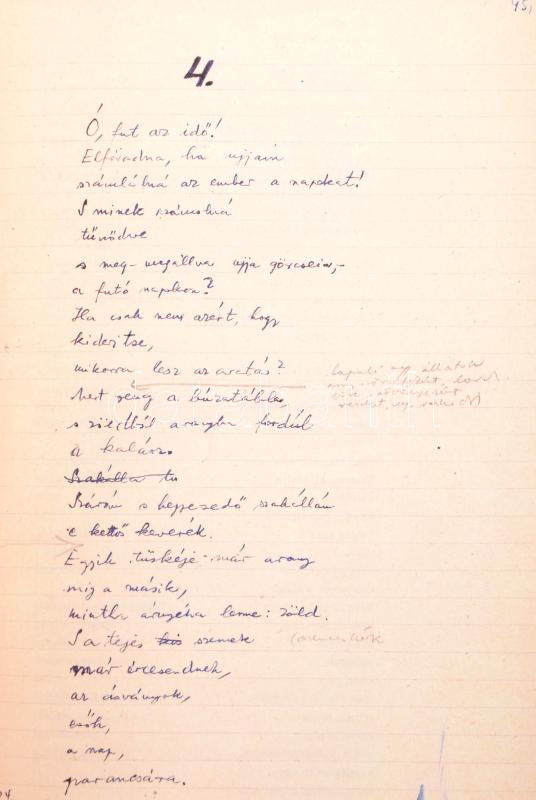 45,
4.
Ó, fut az idő!
Elfáradna, ha ujjain
számlálná az ember a napokat!
S minek számolná
tünődve
s meg-megállva ujja görcsein,-
a futó napokon?
Ha csak nem azért, hogy
kiderítse,
mikorra lesz az aratás?
Mert reng a búzatábla,
s zöldből aranyba fordúl
a kalász.
Szakálla tu
Szárán s hegyesedő szakállán
e kettős keverék.
Egyik tüskéje már arany
míg a másik,
mintha árnyéka lenne: zöld.
S a tejes kis szemek
már ércesednek,
az ásványok,
esők,
a nap,
parancsára.